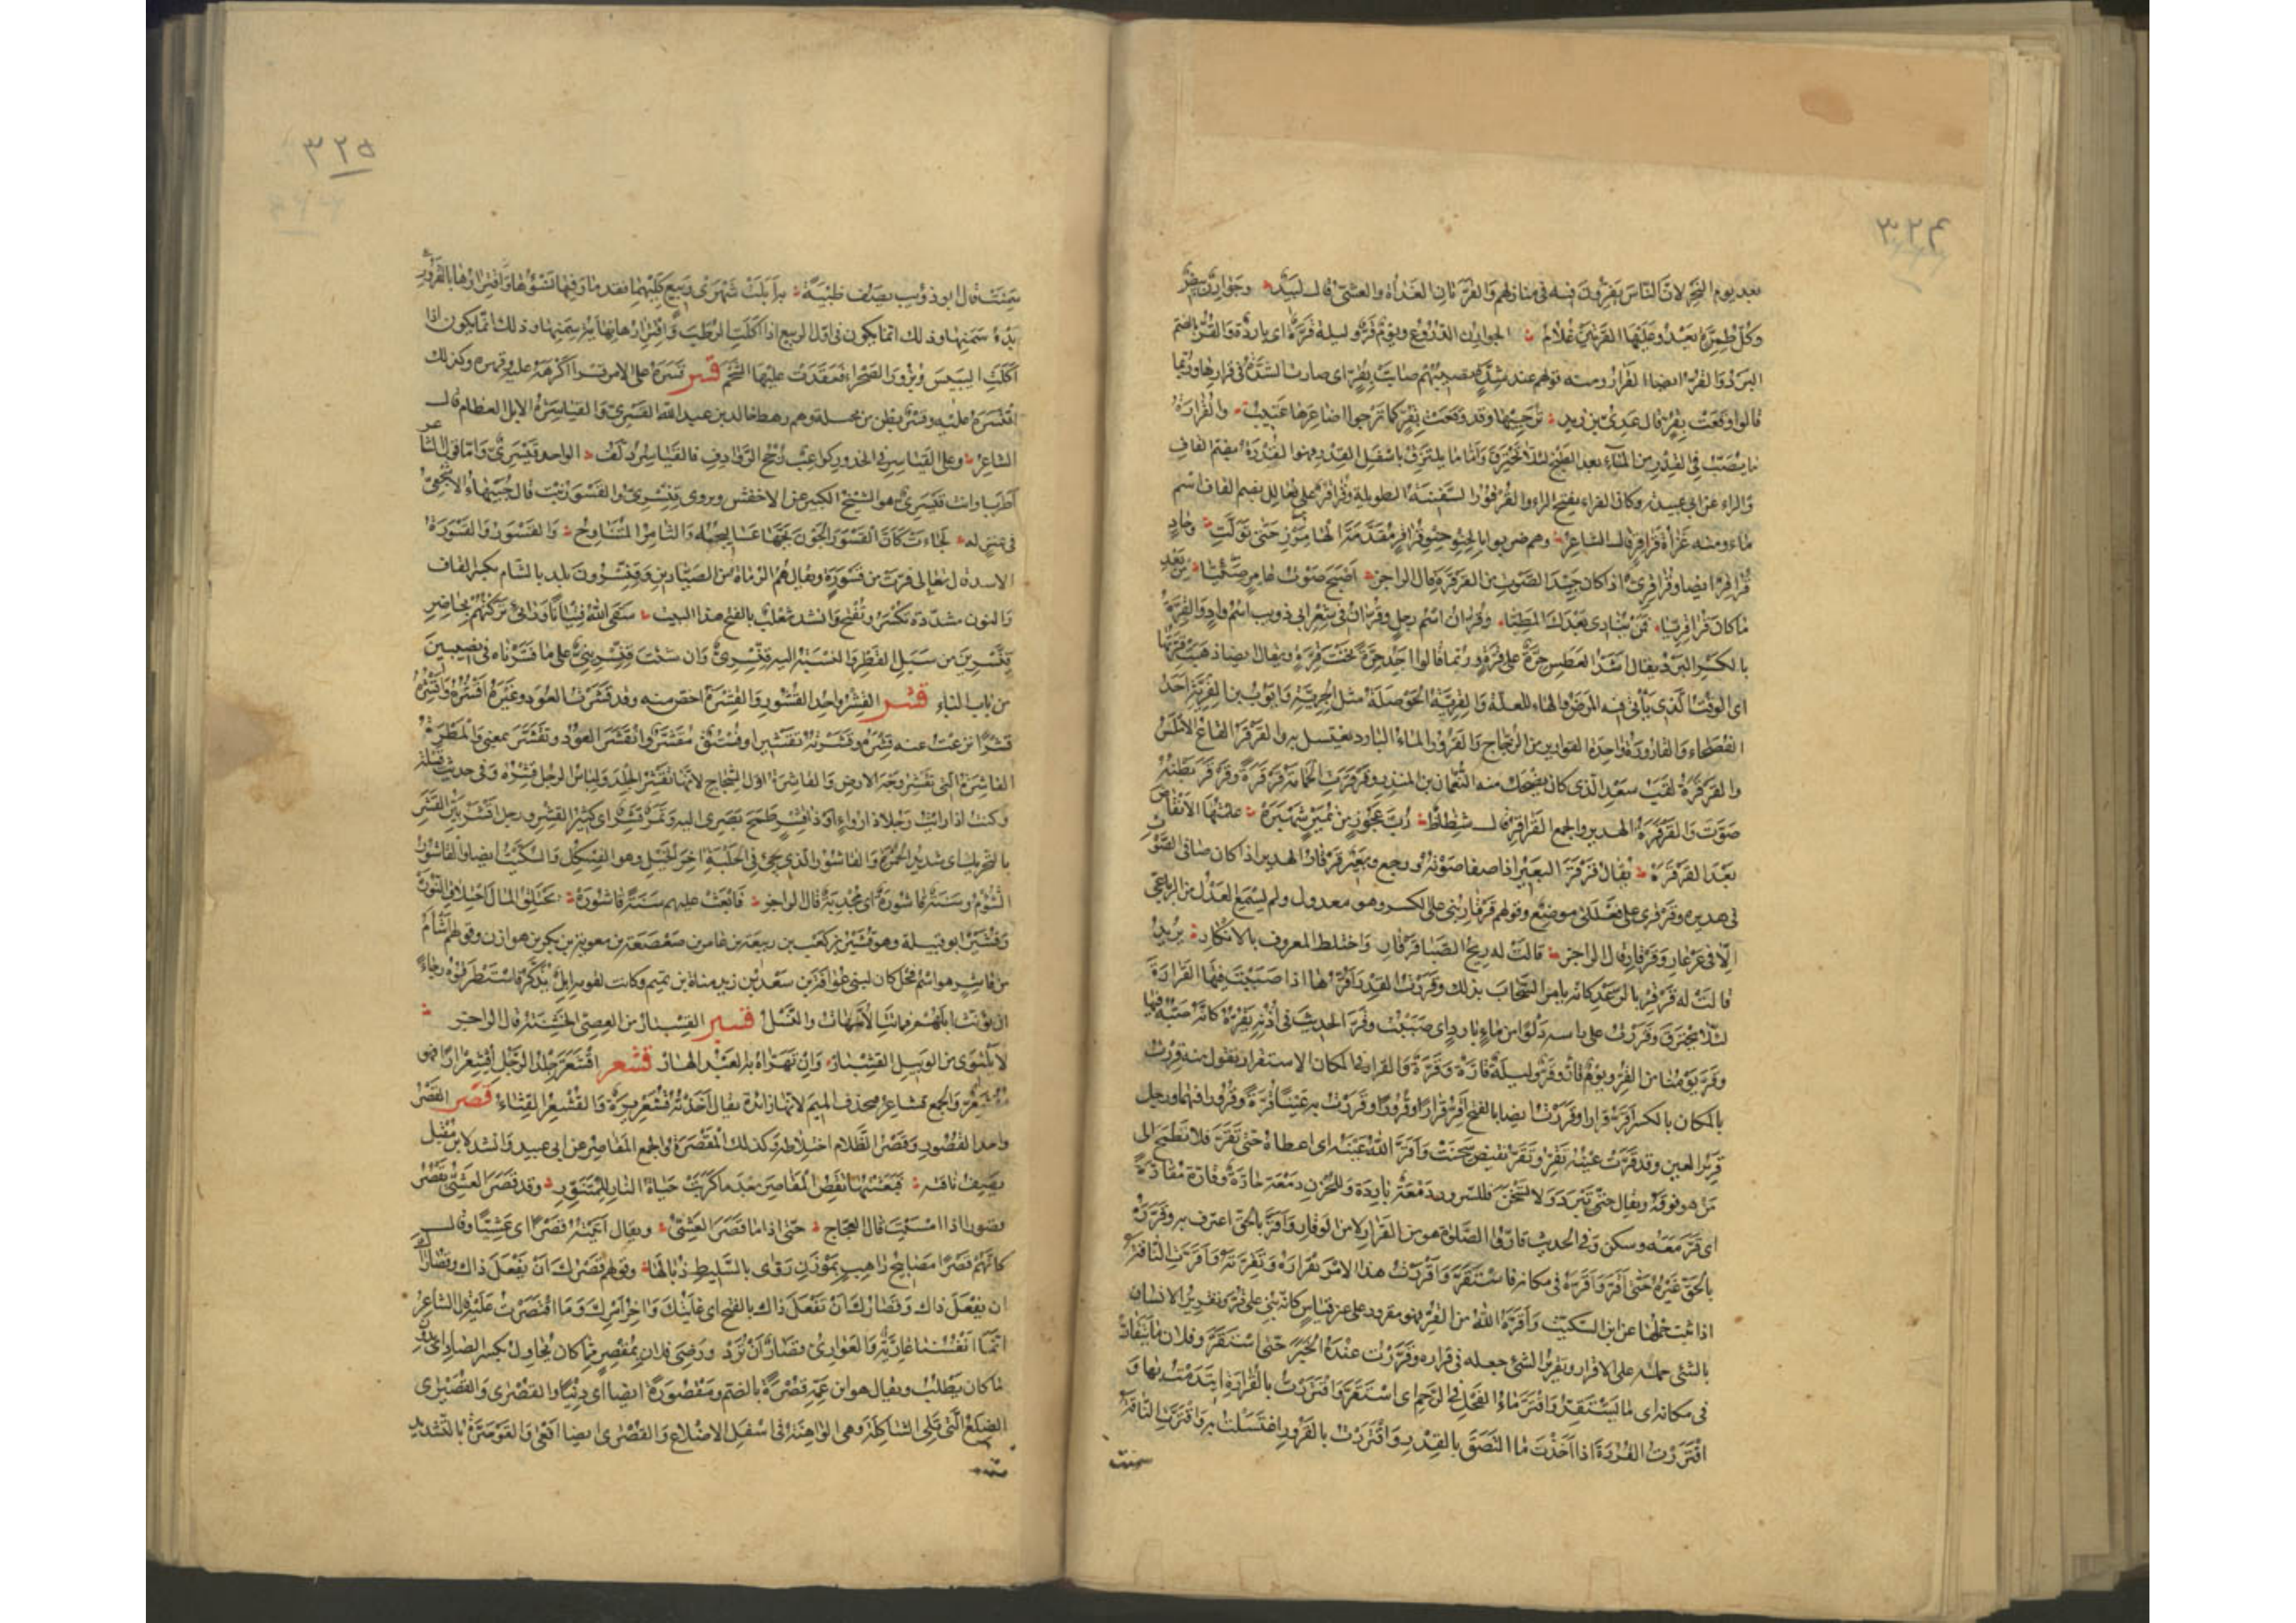 ٣٢٤
بعد يوم النحر لانّ النّاس يقرّون فيه فى منازلهم والقرّتان الغداة والعشىّ قال لبيد وجوارن بيض
وكلّ طمرّة يعدو عليها القرّتين غلام الجوارن الدّروع ويوم قرّ وليلة قرّة اى باردة والقرّ بالضّم
البرد والقرّ ايضا القرار ومنه قولهم عند شدّة تصيبهم صابت بقرّ اى صارت الشدّة فى قرارها وربّما
قالوا وقعت بقرّ قال عدىّ بن زيد ترجّيها وقد وقعت بقرّ كما ترجوا اصاغرها عتيب والقرارة
ما يصبّ فى القدر من الماء بعد الطبخ لئلّا تحترق وامّا ما يلتزق باسفل القدر فهو القررة بضم القاف
والراء عن ابى عبيد وكان الفراء بفتح الراء والقرقور السّفينة الطويلة وقراقر على فعالل بضم القاف اسم
ماء ومنه غزاة قراقر قال الشاعر وهم ضربوا بالحنو حنو قراقر مقدّمة الهامرز حتى تولّت وحاد
قراقر ايضا وقراقرىّ اذا كان جيّد الصّوت من القرقرة قال الراجز اصبح صوت عامر صئيّا من بعد
ما كان قراقريّا فمن ينادى بعدك المطيّا وقرّان اسم رجل وقرّان فى شعر ابى ذويب اسم واد والقرّة
بالكسر البرد يقال اشدّ العطش حرّة على قرّة وربّما قالوا اجد حرّة تحت قرّة ويقال ايضا ذهبت قرّتها
اى الوقت الّذى يأتى فيه المرض والهاء للعلّة والقرّيّة الحوصلة مثل الجرّيّة وايّوب بن القرّيّة احد
الفصحاء والقارورة واحدة القوارير من الزّجاج والقرور الماء البارد يغتسل به والقرقر القاع الاملس
والقرقرة لقب سعد الّذى كان يضحك منه النّعمان بن المنذر وقرقرت الحمامة قرقرة وقرقر بطنه
صوّت والقرقرة الهدير والجمع القراقر قال شظاظ ربّ عجوز من نمير شهبرة علّمتها الانقاض
بعد القرقرة يقال قرقر البعير اذا صفا صوته ورجع وبعير قرقار الهدير اذا كان صافى الصّوت
فى هديره وقرقرى على فعللى موضع وقولهم قرقار بنى على الكسر وهو معدول ولم يسمع العدل من الرباعى
الّا فى عرعار وقرقار قال الراجز قالت له ريح الصّبا قرقار واختلط المعروف بالانكار يريد
قالت له قرقر بالرّعد كانه يامر السّحاب بذلك وقررت القدر اقرّها اذا صببت فيها القرارة
لئلّا تحترق وقررت على راسه دلوا من ماء بارد اى صببت وقرّ الحديث فى اذنه يقرّه كانّه صبّه فيها
وقرّ يومنا من القرّ ويوم قارّ وقرّ وليلة قارّة وقرّة والقرار فى المكان الاستقرار تقول منه قررت
بالمكان بالكسر اقرّ قرارا وقررت ايضا بالفتح اقرّ قرارا وقرورا وقررت به عينا قرّة وقرورا فيهما ورجل
قرير العين وقد قرّت عينه تقرّ وتقرّ نقيض سخنت واقرّ اللّه عينه اى اعطاه حتى تقرّ فلا تطمح الى
من هو فوقه ويقال حتى تبرد ولا تسخن فللسرور دمعة باردة وللحزن دمعة حارّة وقارّة مقارّة
اى قرّ معه وسكن وفى الحديث قارّوا الصّلوة هو من القرار لا من الوقار واقرّ بالحق اعترف به وقرّره
بالحقّ غيره حتى اقرّ واقرّه فى مكانه فاستقرّ واقررت هذا الامر تقرارة وتقرّة واقرّت الناقة
اذا ثبت حملها عن ابن السّكيت واقرّه اللّه من القرّ فهو مقرور على غير قياس كانه بنى على قرّ وتقرير الانسان
بالشئ حمله على الاقرار وتقرير الشئ جعله فى قراره وقرّرت عنده الخبر حتى استقرّ وفلان ما يتقارّ
فى مكانه اى ما يستقرّ واقترّ ماء الفحل فى الرّحم اى استقرّ واقتررت بالقرارة ايتدمت بها و
اقتررت القررة اذا اخذت ما التصق بالقدر واقتررت بالقرور اغتسلت به واقترّت الناقة
سمنت
٣٢٥
سمنت قال ابو ذويب يصف ظبية به ابلت شهرى ربيع كليهما فقد مار فيها نسؤها واقترارها بالقرور
بدء سمنها وذلك انما يكون فى اوّل الربيع اذا اكلت الرطب واقترارها نهاية سمنها وذلك انما يكون اذا
اكلت اليبيس وبزور الصحراء فعقدت عليها الشّحم قسر قسره على الامر قسرا اكرهه عليه وقهره وكذلك
اقتسره عليه وقسر بطن من بجيلة وهم رهط خالد بن عبد اللّه القسرىّ والقياسرة الابل العظام قال
الشاعر وعلى القياسر فى الخدور كواعب رجح الرّوادف فالقياسر دلّف الواحد قيسرىّ وامّا قول الشاعر
اطربا وانت قيسرىّ هو الشيخ الكبير عن الاخفش ويروى قنّسرىّ والقسور نبت قال جبيهاء الاشجعىّ
فى عنز له لجاءت كانّ القسور الجون بجّها عساليجه والثامر المتناوح والقسور والقسورة
الاسد قال تعالى فرّت من قسورة ويقال هم الرماة من الصيّادين وقنّسرون بلد بالشام بكسر القاف
والنون مشدّدة تكسر وتفتح وانشد ثعلب بالفتح هذا البيت سقى اللّه فتيانا ورائى تركتهم بحاضر
قنّسرين من سبل القطر والنسبة اليه قنّسرىّ وان شئت قنّسرينىّ على ما فسّرناه فى نصيبين
من باب الباء قشر القشر واحد القشور والقشرة اخصّ منه وقد قشرت العود وغيره اقشره واقشره
قشرا نزعت عنه قشره وقشّرته تقشيرا وفستق مقشّر وانقشر العود وتقشّر بمعنى والمطرة
القاشرة الّتى تقشر وجه الارض والقاشرة اوّل الشّجاج لانّها تقشر الجلد ولباس الرجل قشره وفى حديث قيلة
وكنت اذا رايت رجلا ذا رواء او ذا قشر طمح بصرى اليه وتمر قشر اى كثير القشر ورجل اقشر بيّن القشر
بالتحريك اى شديد الحمرة والقاشور الّذى يجئ فى الحلبة آخر الخيل وهو الفسكل والسّكيت ايضا والقاشور
الشّؤم وسنة قاشورة اى مجدبة قال الراجز فابعث عليهم سنة قاشورة تحتلق المال احتلاق النّورة
وقشير ابو قبيلة وهو قشير بن كعب بن ربيعة بن عامر بن صعصعة بن معوية بن بكر بن هوازن وقولهم اشأم
من قاشر هو اسم فحل كان لبنى عوافة بن سعد بن زيد مناة بن تميم وكانت لقوم ابل تذكر فاستطرقوه رجاء
ان يؤنث ابلهم فماتت الامّهات والنّسل قسبر القسبار من العصىّ الخشنة قال الراجز
لا يلتوى من الوبيل القسبار وان تهرّاه به العبد الهار قشعر اقشعرّ جلد الرّجل اقشعرارا فهو
مقشعرّ والجمع قشاعر فتحذف الميم لانها زائدة يقال اخذته قشعريرة والقشعر القثّاء قصر القصر
واحد القصور وقصر الظّلام اختلاطه وكذلك المقصرة والجمع المقاصر عن ابى عبيد وانشد لابن مقبل
يصف ناقة فبعثتها تقص المقاصر بعد ما كربت حياة النار للمتنوّر وقد قصر العشىّ يقصر
قصورا اذا امسيت قال العجّاج حتى اذا ما قصر العشىّ ويقال اتيته قصرا اى عشيّا وقال
كانّهم قصرا مصابيح راهب بموزن روّى بالسّليط ذبالها وقولهم قصرك ان تفعل ذاك وقصاراك
ان تفعل ذاك وقصارك ان تفعل ذاك بالفتح اى غايتك وآخر امرك وما اقتصرت عليه قال الشاعر
انّما انفسنا عاريّة والعوارىّ قصار ان تردّ ورضى فلان بمقصر مما كان يحاول بكسر الصاد اى بدون
ما كان يطلب ويقال هو ابن عمّه قصرة بالضم ومقصورة ايضا اى دنيا والقصرى والقصيرى
الضلع الّتى تلى الشاكلة وهى الواهنة فى اسفل الاضلاع والقصرى ايضا افعى والقوصرّة بالتشديد